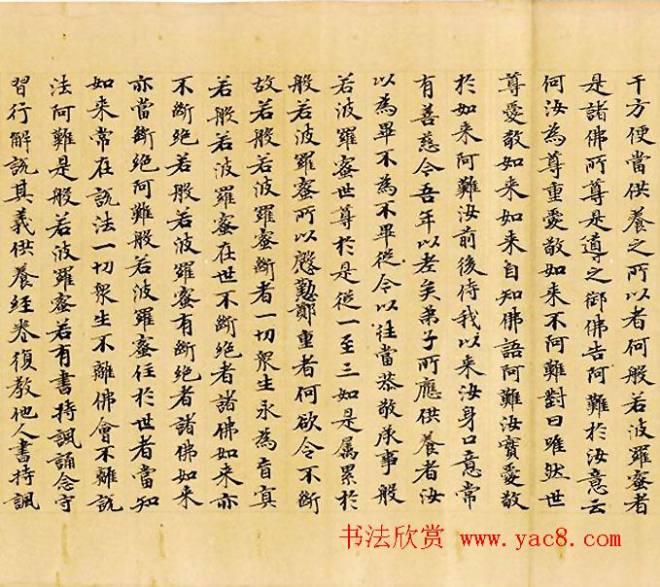 千方便當供養之所以者何般若波羅蜜者
是諸佛所尊是導之御佛告阿難於汝意云
何汝為尊重愛敬如来不阿難對曰唯然世
尊愛敬如来如来自知佛語阿難汝實愛敬
於如来阿難汝前後侍我以来汝身口意常
有善慈今吾年以老矣弟子所應供養者汝
以為畢不為不畢從今以往當恭敬承事般
若波羅蜜世尊於是從一至三如是属累於
般若波羅蜜所以慇懃鄭重者何欲令不斷
故若般若波羅蜜斷者一切衆生永為盲冥
若般若波羅蜜在世不斷絕者諸佛如来亦
不斷絕若般若波羅蜜有斷絕者諸佛如来
亦當斷絕阿難般若波羅蜜住於世者當知
如来常在說法一切衆生不離佛會不離說
法阿難是般若波羅蜜若有書持諷誦念守
習行解說其義供養經卷復教他人書持諷
书法欣赏 www.yac8.com